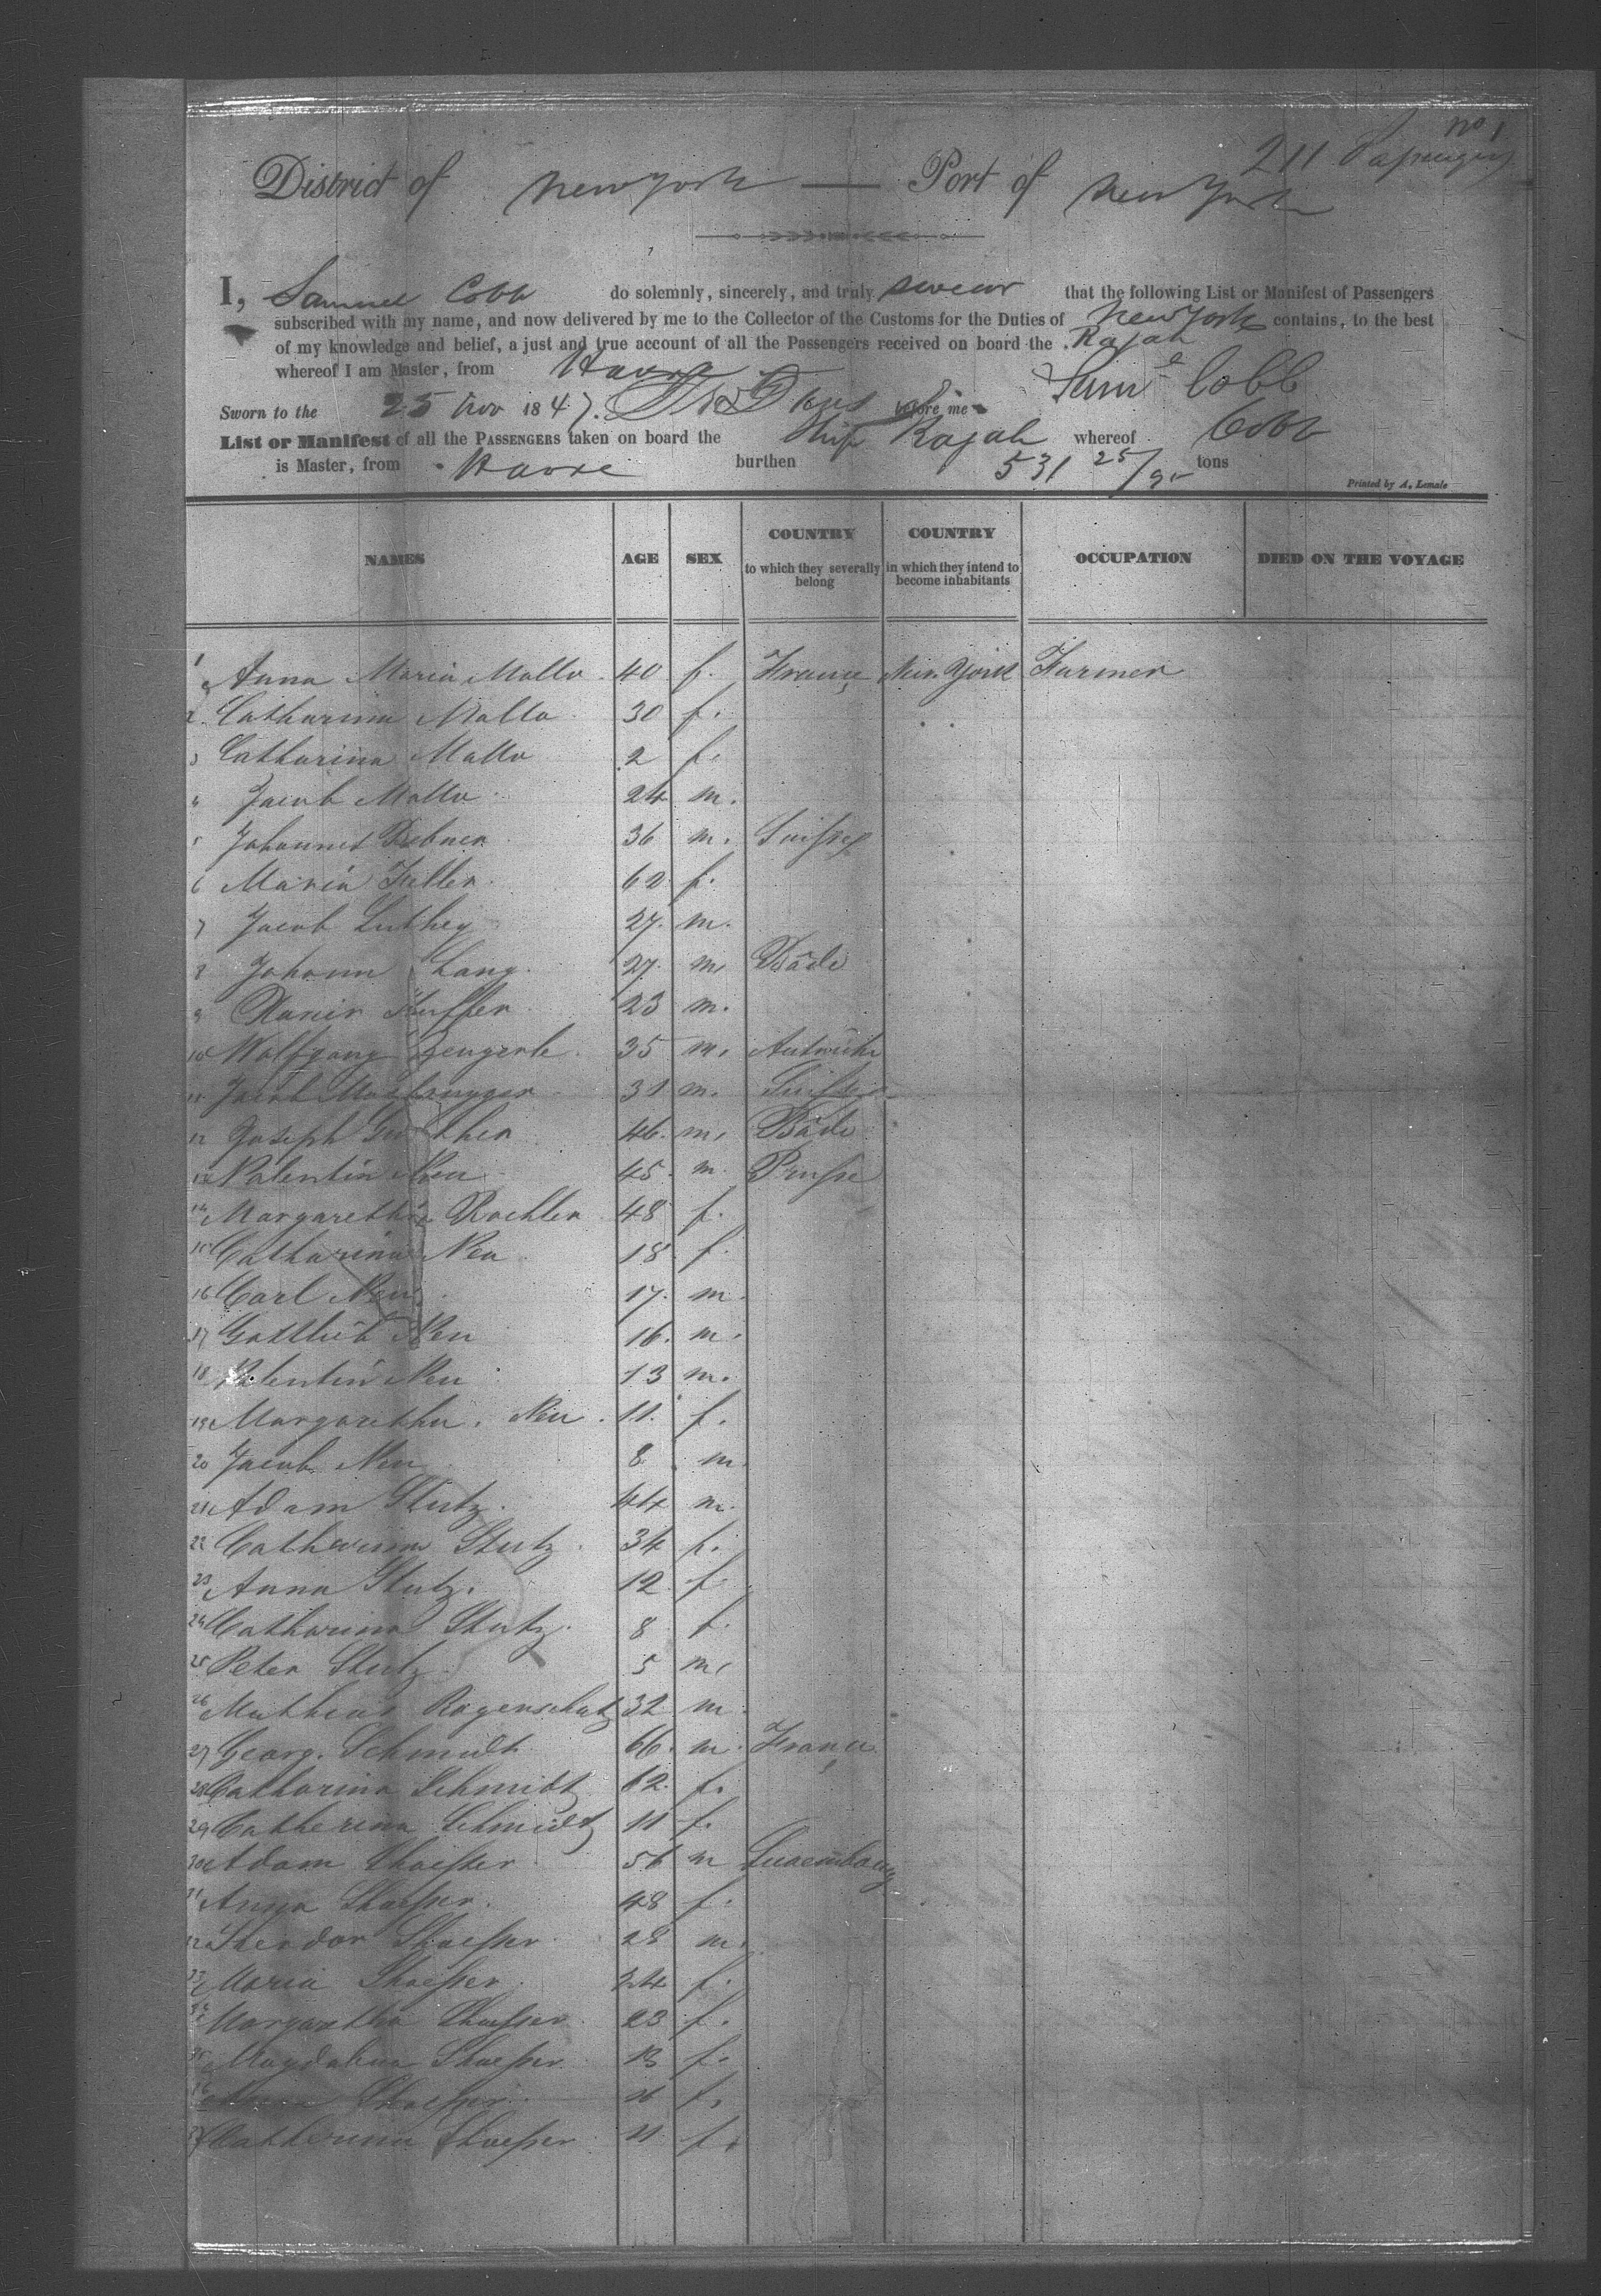 no 1
211 Passengers
District of New York — Port of New York
I, Samuel Cobb do solemnly, sincerely, and truly swear that the following List or Manifest of Passengers
subscribed with my name, and now delivered by me to the Collector of the Customs for the Duties of New York contains, to the best
of my knowledge and belief, a just and true account of all the Passengers received on board the Rajah
whereof I am Master, from Havre Saml Cobb
Sworn to the 25 Nov 1847. before me
List or Manifest of all the PASSENGERS taken on board the Ship Rajah whereof Cobb
is Master, from Havre burthen 531 25/95 tons
Printed by A. Lemale
NAMES AGE SEX COUNTRY to which they severally belong COUNTRY in which they intend to become inhabitants OCCUPATION DIED ON THE VOYAGE
1 Anna Maria Mallo 40 f. France New York Farmer
2 Catharina Mallo 30 f.
3 Catharina Mallo 2 f.
4 Jacob Mallo 24 m.
5 Johannes 36 m. Suisse
6 Maria 62 f.
7 Jacob Luthey 27. m.
8 Johann Lang 27. m, Bade
9 Xavier 23 m.
10 Wolfgang 35 m. Autriche
11 Jacob 31 m. Suisse
12 Joseph 46. m, Bade
13 Valentin Neu 45. m. Prusse
14 Margaretha Rochler 48 f.
15 Catharina Neu 18 f.
16 Carl Neu 17. m.
17 Gottlieb Neu 16. m.
18 Valentin Neu 13 m.
19 Margaretha. Neu. 11. f.
20 Jacob Neu 8 m.
21 Adam Stutz. 44 m.
22 Catharina Stutz. 34 f.
23 Anna Stutz. 12 f.
24 Catharina Stutz. 8 f.
25 Peter Stutz 5 m,
26 Mathias Rogenschutz 32 m.
27 Georg. Schmidt 66. m. France
28 Catharina Schmidt 62. f.
29 Catherina Schmidt 11 f.
30 Adam Shaesser 56 m Luxembourg
31 Anna Shaesser. 48 f.
32 Theodor Shaesser. 28 m.
33 Maria Shaesser 24 f.
34 Margaretha Shaesser. 23 f.
35 Magdalena Shaesser 13 f.
36 Shaesser. f.
37 Catherina Shaesser 11. f.